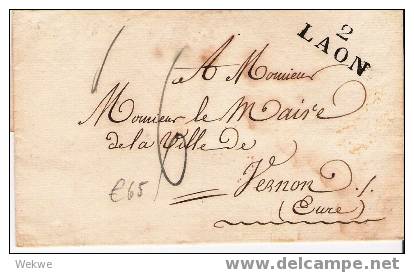 2
LAON
A Monsieur
Monsieur le Maire
de la Ville de
Vernon
(Eure)
€65
6
Wekwe
delcampe.net